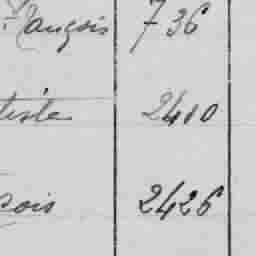 François 736
tiste 2410
çois 2426